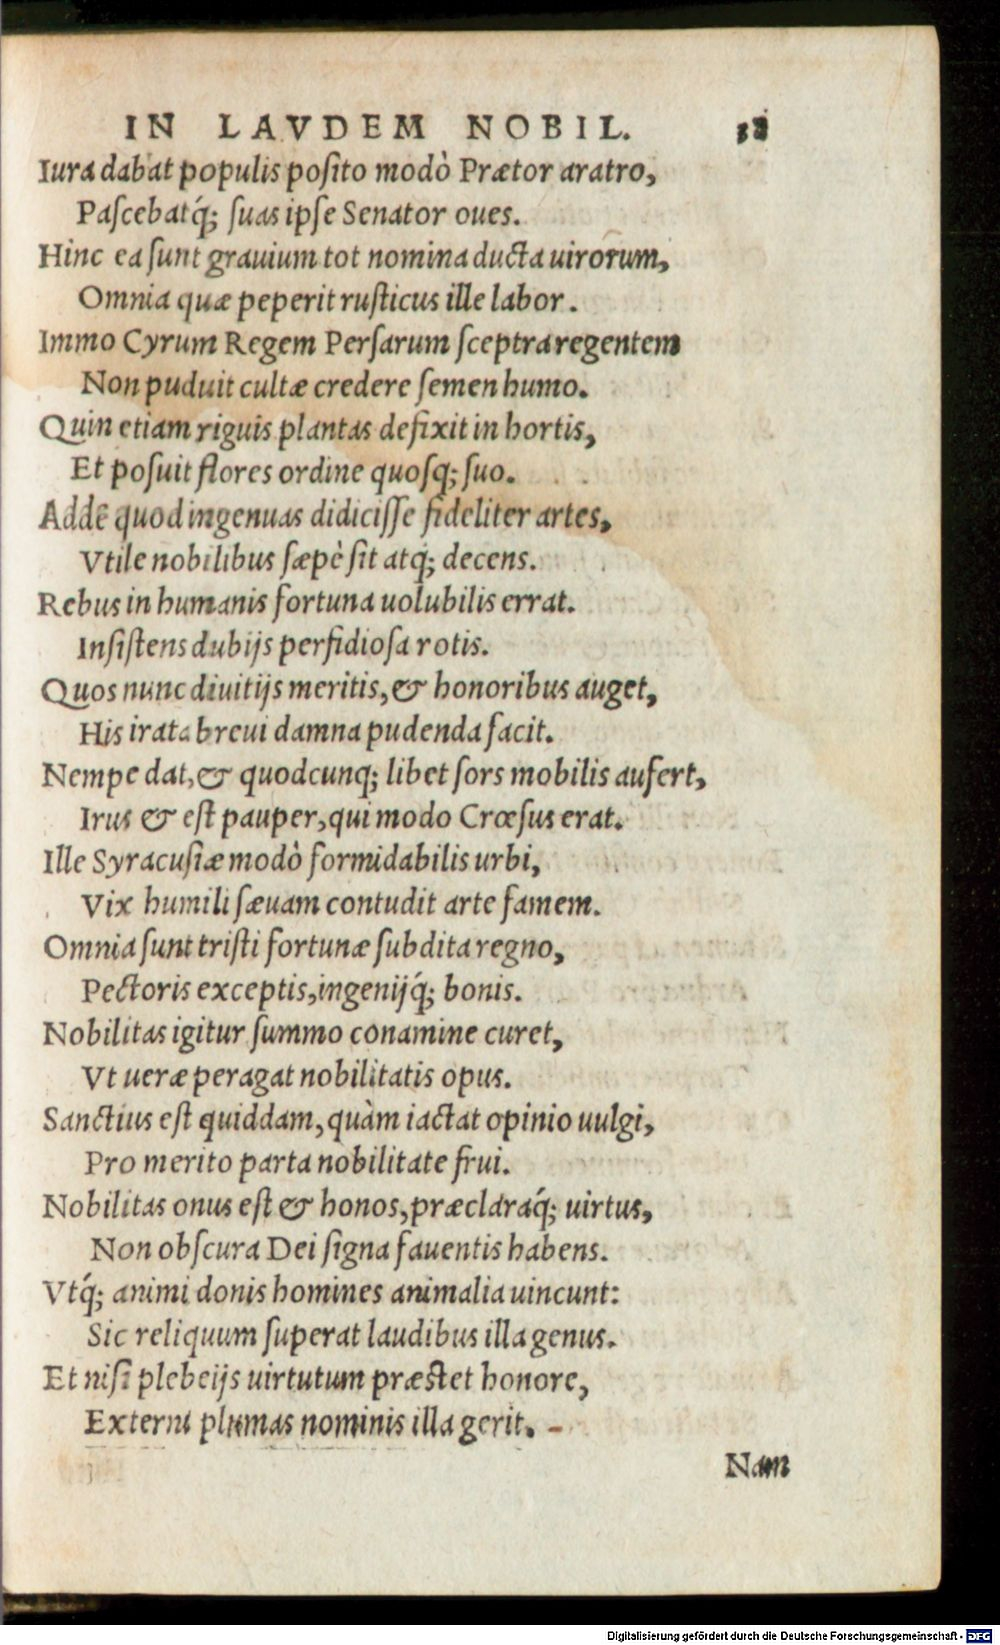 IN LAVDEM NOBIL. 38
Iura dabat populis posito modò Prætor aratro,
Pascebatq́; suas ipse Senator oues.
Hinc ea sunt grauium tot nomina ducta uirorum,
Omnia quæ peperit rusticus ille labor.
Immo Cyrum Regem Persarum sceptra regentem
Non puduit cultæ credere semen humo.
Quin etiam riguis plantas defixit in hortis,
Et posuit flores ordine quosq; suo.
Adde quod ingenuas didicisse fideliter artes,
Vtile nobilibus sæpè sit atq; decens.
Rebus in humanis fortuna uolubilis errat.
Insistens dubijs perfidiosa rotis.
Quos nunc diuitijs meritis, & honoribus auget,
His irata breui damna pudenda facit.
Nempe dat, & quodcunq; libet sors mobilis aufert,
Irus & est pauper, qui modo Crœsus erat.
Ille Syracusiæ modò formidabilis urbi,
Vix humili sæuam contudit arte famem.
Omnia sunt tristi fortunæ subdita regno,
Pectoris exceptis, ingenijq́; bonis.
Nobilitas igitur summo conamine curet,
Vt ueræ peragat nobilitatis opus.
Sanctius est quiddam, quàm iactat opinio uulgi,
Pro merito parta nobilitate frui.
Nobilitas onus est & honos, præclaraq́; uirtus,
Non obscura Dei signa fauentis habens.
Vtq́; animi donis homines animalia uincunt:
Sic reliquum superat laudibus illa genus.
Et nisi plebeijs uirtutum præstet honore,
Externi plumas nominis illa gerit.
Nam
Digitalisierung gefördert durch die Deutsche Forschungsgemeinschaft - DFG